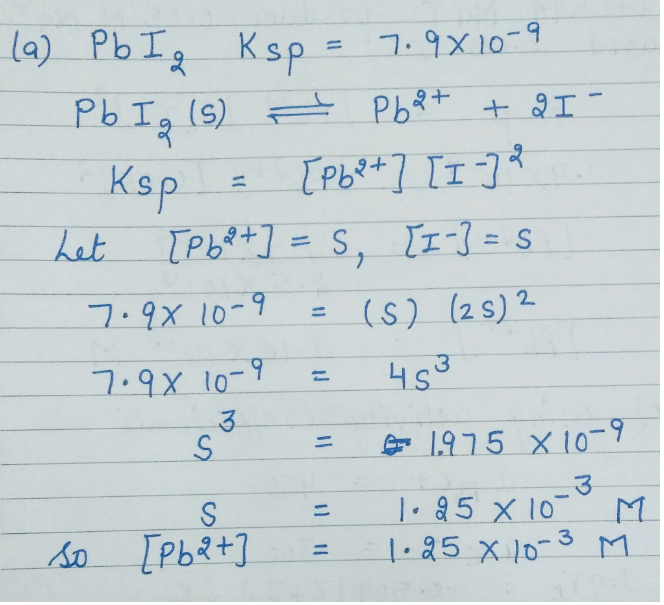 (a) PbI₂ Ksp = 7.9×10⁻⁹
PbI₂ (s) ⇌ Pb²⁺ + 2I⁻
Ksp = [Pb²⁺] [I⁻]²
Let [Pb²⁺] = S, [I⁻] = S
7.9× 10⁻⁹ = (S) (2S)²
7.9× 10⁻⁹ = 4S³
S³ = 1.975 ×10⁻⁹
S = 1.25 ×10⁻³ M
So [Pb²⁺] = 1.25 ×10⁻³ M